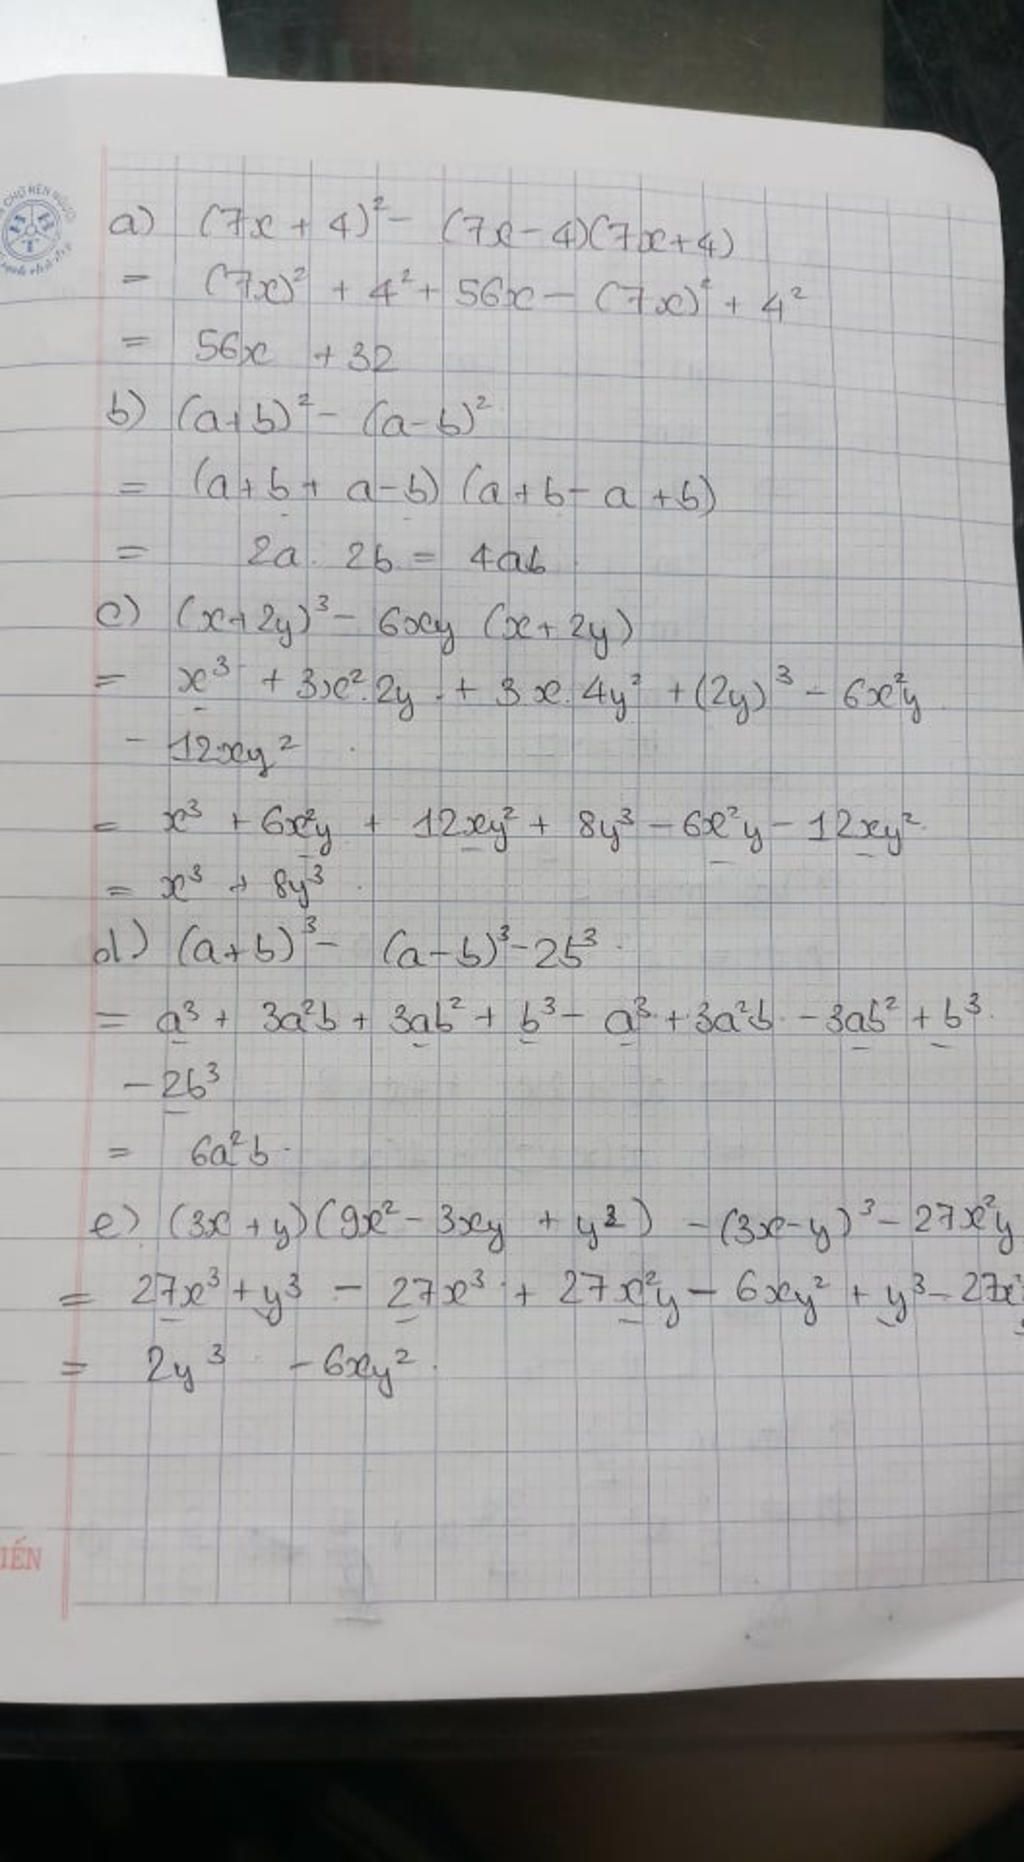 CHỮ NẾT NGƯỜI
a) (7x + 4)² - (7x - 4)(7x + 4)
= (7x)² + 4² + 56x - (7x)² + 4²
= 56x + 32
b) (a+b)² - (a-b)²
= (a+b+ a-b) (a+b- a +b)
= 2a. 2b = 4ab
c) (x+2y)³ - 6xy (x+2y)
= x³ + 3x².2y + 3x.4y² + (2y)³ - 6x²y
- 12xy²
= x³ + 6x²y + 12xy² + 8y³ - 6x²y - 12xy²
= x³ + 8y³
d) (a+b)³ - (a-b)³ - 2b³
= a³ + 3a²b + 3ab² + b³ - a³ + 3a²b - 3ab² + b³
- 2b³
= 6a²b
e) (3x+y)(9x² - 3xy + y²) - (3x-y)³ - 27x²y
= 27x³ + y³ - 27x³ + 27x²y - 6xy² + y³ - 27x²
= 2y³ - 6xy²
IẾN